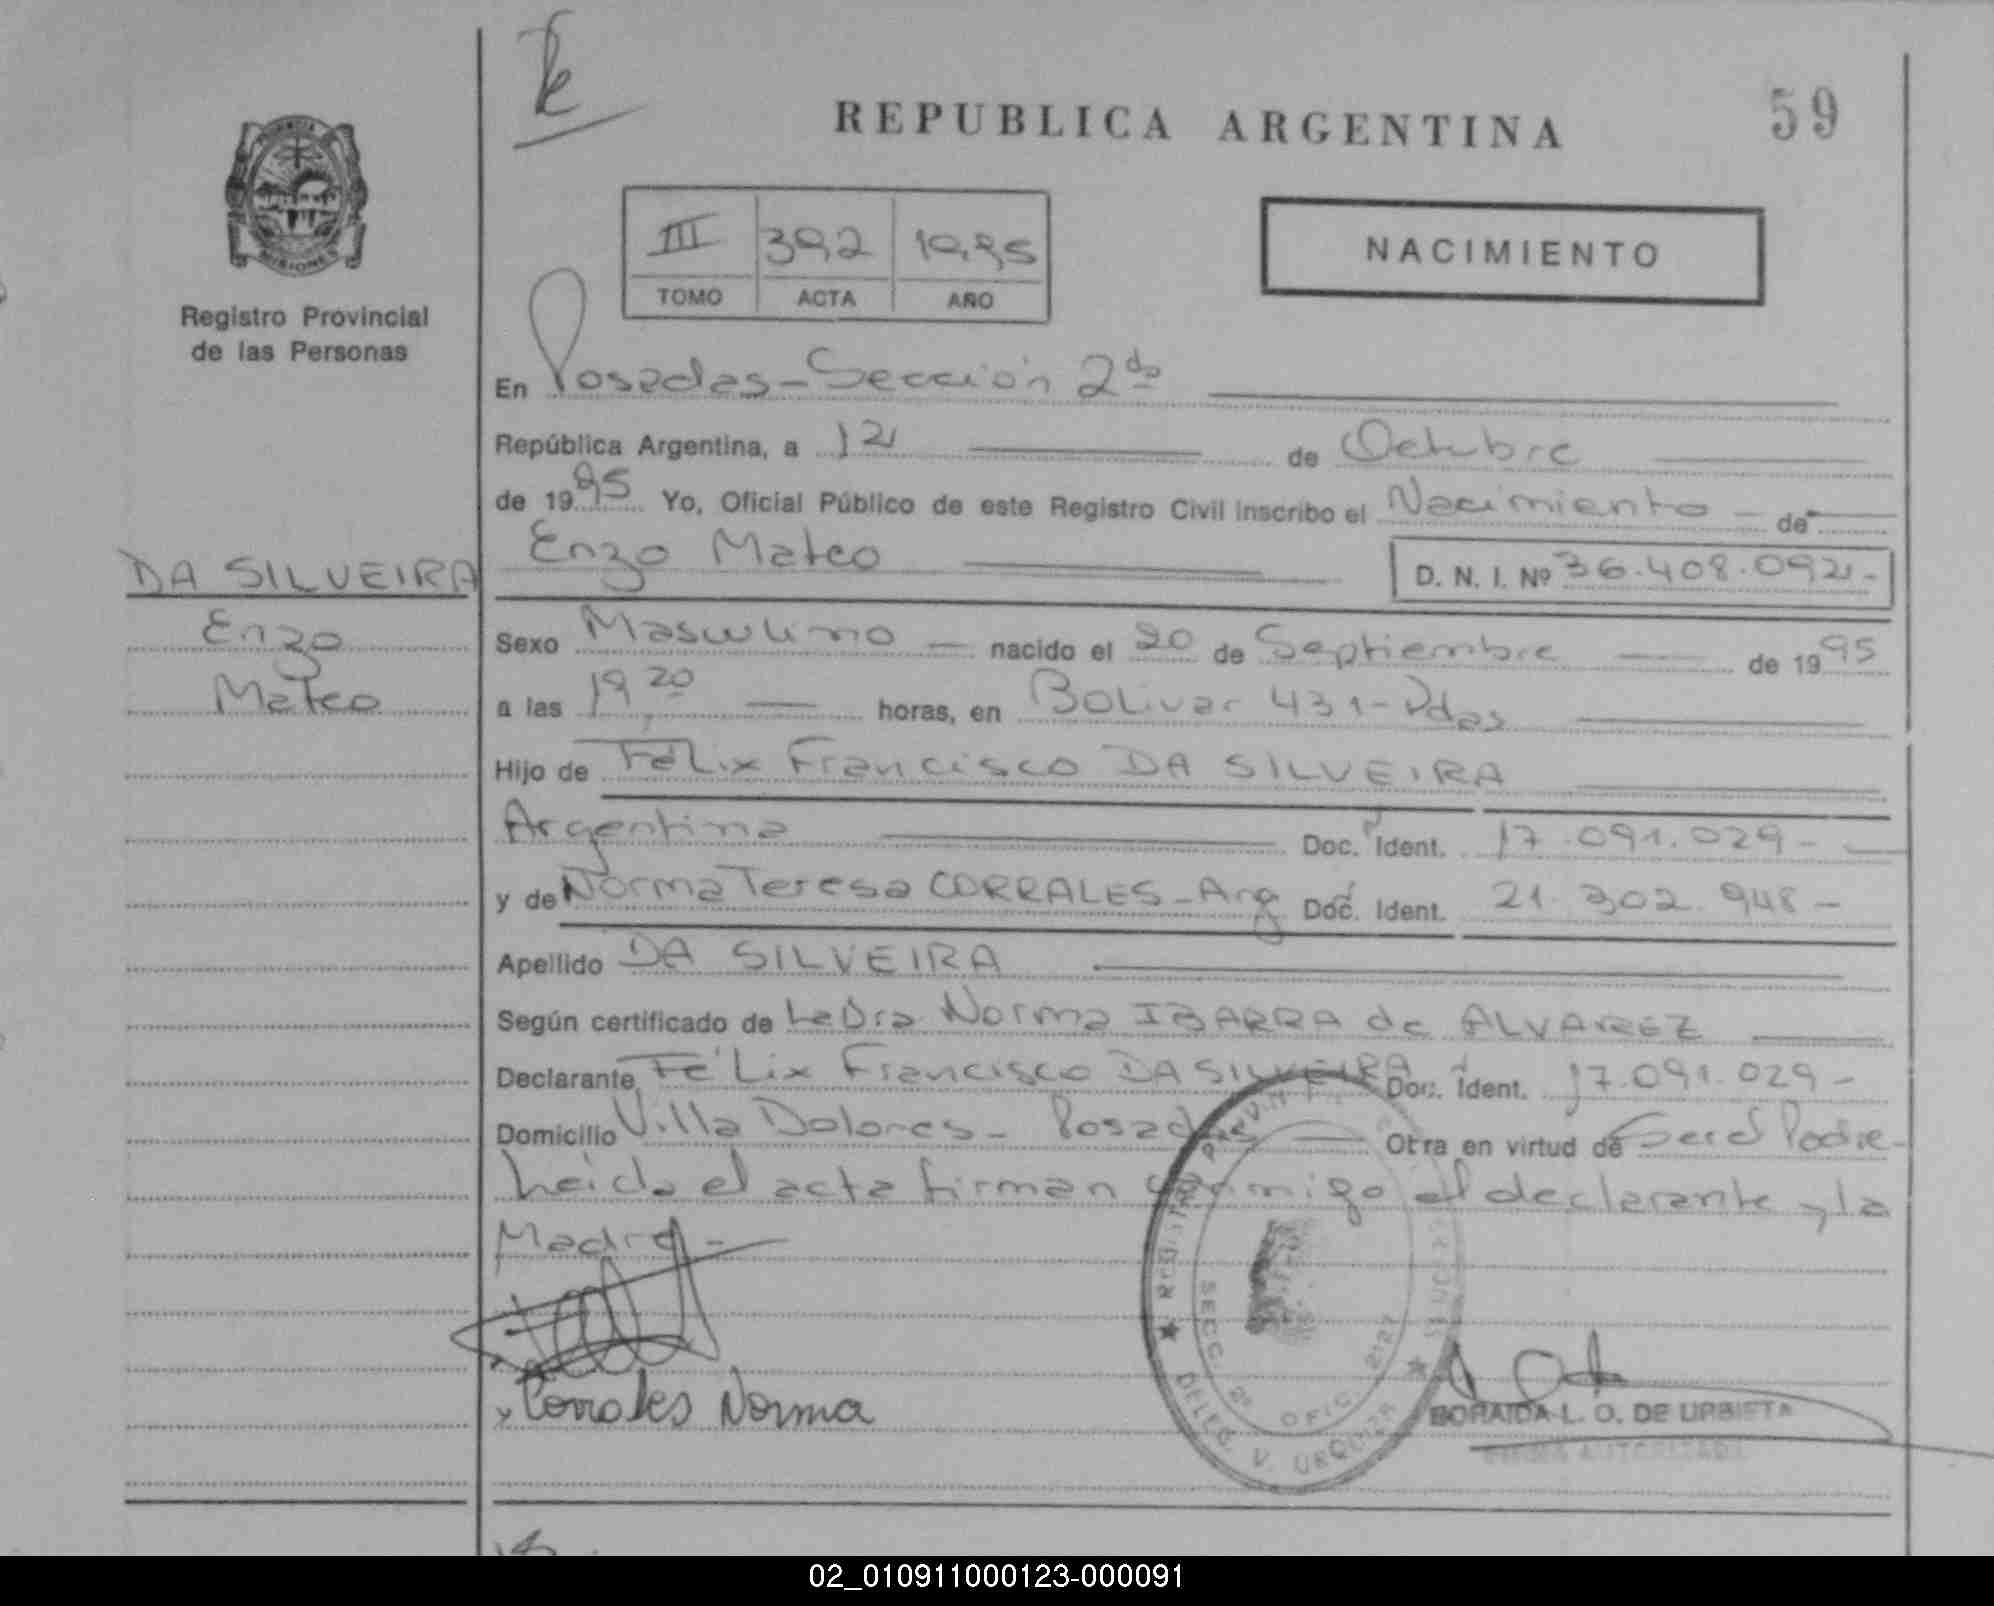 59
REPUBLICA ARGENTINA
MISIONES
Registro Provincial
de las Personas
III 392 1995
TOMO ACTA AÑO
NACIMIENTO
En Posadas - Sección 2da
República Argentina, a 12 de Octubre
de 1995 Yo, Oficial Público de este Registro Civil inscribo el Nacimiento - de
Enzo Mateo D. N. I. Nº 36.408.092 -
DA SILVEIRA
Enzo
Mateo
Sexo Masculino - nacido el 20 de Septiembre de 1995
a las 19,20 horas, en Bolivar 431 - Pdas
Hijo de Félix Francisco DA SILVEIRA
Argentina Doc. Ident. 17.091.029 -
y de Norma Teresa CORRALES - Arg Doc. Ident. 21.302.948 -
Apellido DA SILVEIRA
Según certificado de La Dra Norma IBARRA de ALVAREZ
Declarante Félix Francisco DA SILVEIRA Doc. Ident. 17.091.029 -
Domicilio Villa Dolores - Posadas Otra en virtud de Ser el Padre -
Leida el acta firman conmigo el declarante y la
Madre -
Corrales Norma
SECC. 2º OFIC. 2127
DELEG. V. URQUIZA
L. O. DE URBIETA
FIRMA AUTORIZADA
02_010911000123-000091